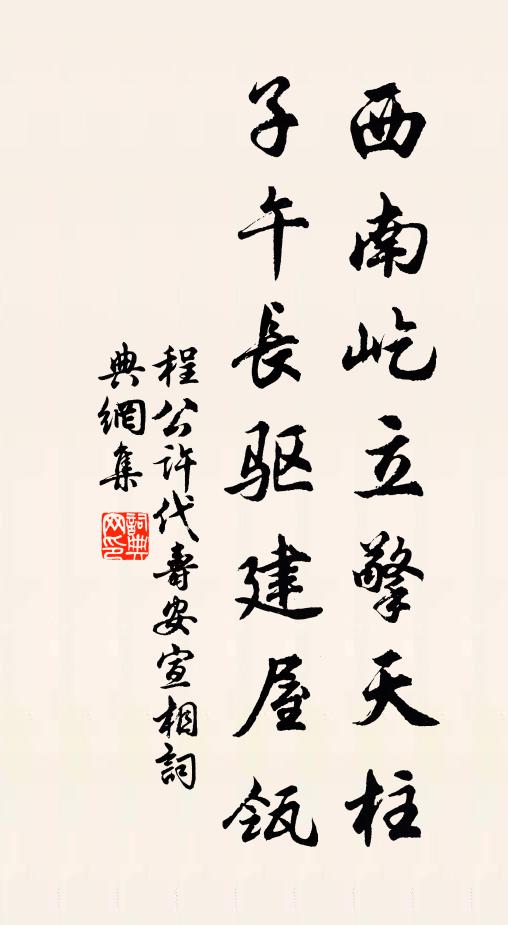 西南屹立擎天柱
子午長驱建屋瓴
程公许代壽安宣相詞
典網集
詞典
网印